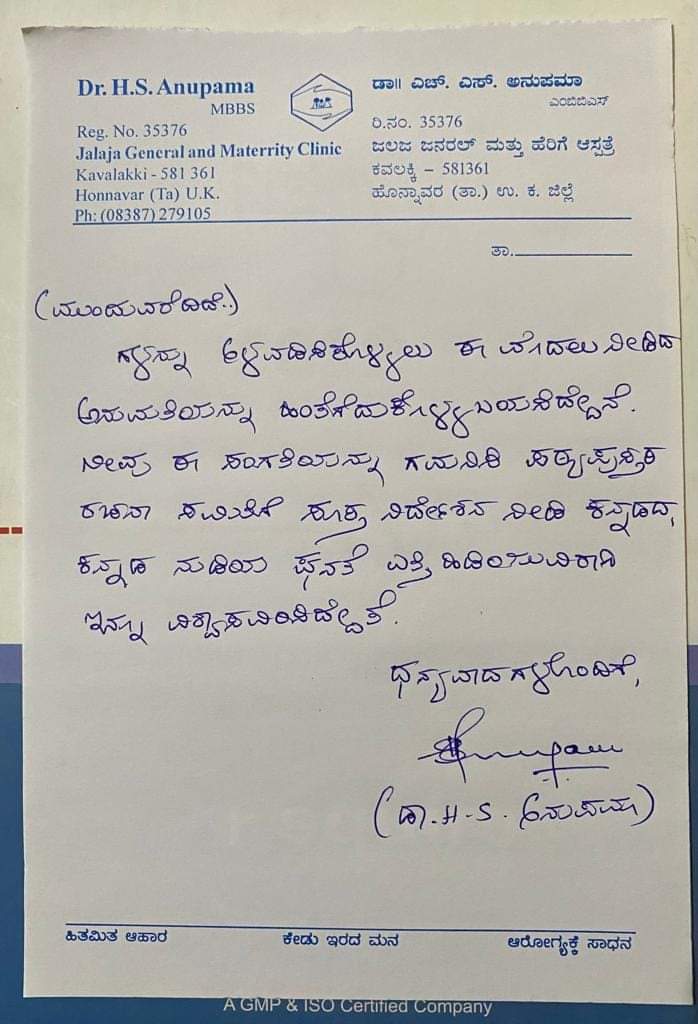 Dr. H.S. Anupama
MBBS
Reg. No. 35376
Jalaja General and Materrity Clinic
Kavalakki - 581 361
Honnavar (Ta) U.K.
Ph: (08387) 279105
ಡಾ॥ ಎಚ್. ಎಸ್. ಅನುಪಮಾ
ಎಂಬಿಬಿಎಸ್
ರಿ.ನಂ. 35376
ಜಲಜ ಜನರಲ್ ಮತ್ತು ಹೆರಿಗೆ ಆಸ್ಪತ್ರೆ
ಕವಲಕ್ಕಿ – 581361
ಹೊನ್ನಾವರ (ತಾ.) ಉ. ಕ. ಜಿಲ್ಲೆ
ತಾ.
(ಮುಂದುವರೆದಿದೆ..)
ಗಳನ್ನು ಅಳವಡಿಸಿಕೊಳ್ಳಲು ಈ ಮೊದಲು ನೀಡಿದ
ಅನುಮತಿಯನ್ನು ಹಿಂತೆಗೆದುಕೊಳ್ಳಬಯಸಿದ್ದೇನೆ.
ನೀವು ಈ ಸಂಗತಿಯನ್ನು ಗಮನಿಸಿ ಪಠ್ಯಪುಸ್ತಕ
ರಚನಾ ಸಮಿತಿಗೆ ಸೂಕ್ತ ನಿರ್ದೇಶನ ನೀಡಿ ಕನ್ನಡದ,
ಕನ್ನಡ ನುಡಿಯ ಘನತೆ ಎತ್ತಿ ಹಿಡಿಯುವಿರಾಗಿ
ವಿಶ್ವಾಸವಿರಿಸಿದ್ದೇನೆ.
ಧನ್ಯವಾದಗಳೊಂದಿಗೆ,
(ಡಾ. H.S. ಅನುಪಮಾ)
ಹಿತಮಿತ ಆಹಾರ
ಕೇಡು ಇರದ ಮನ
ಆರೋಗ್ಯಕ್ಕೆ ಸಾಧನ
A GMP & ISO Certified Company